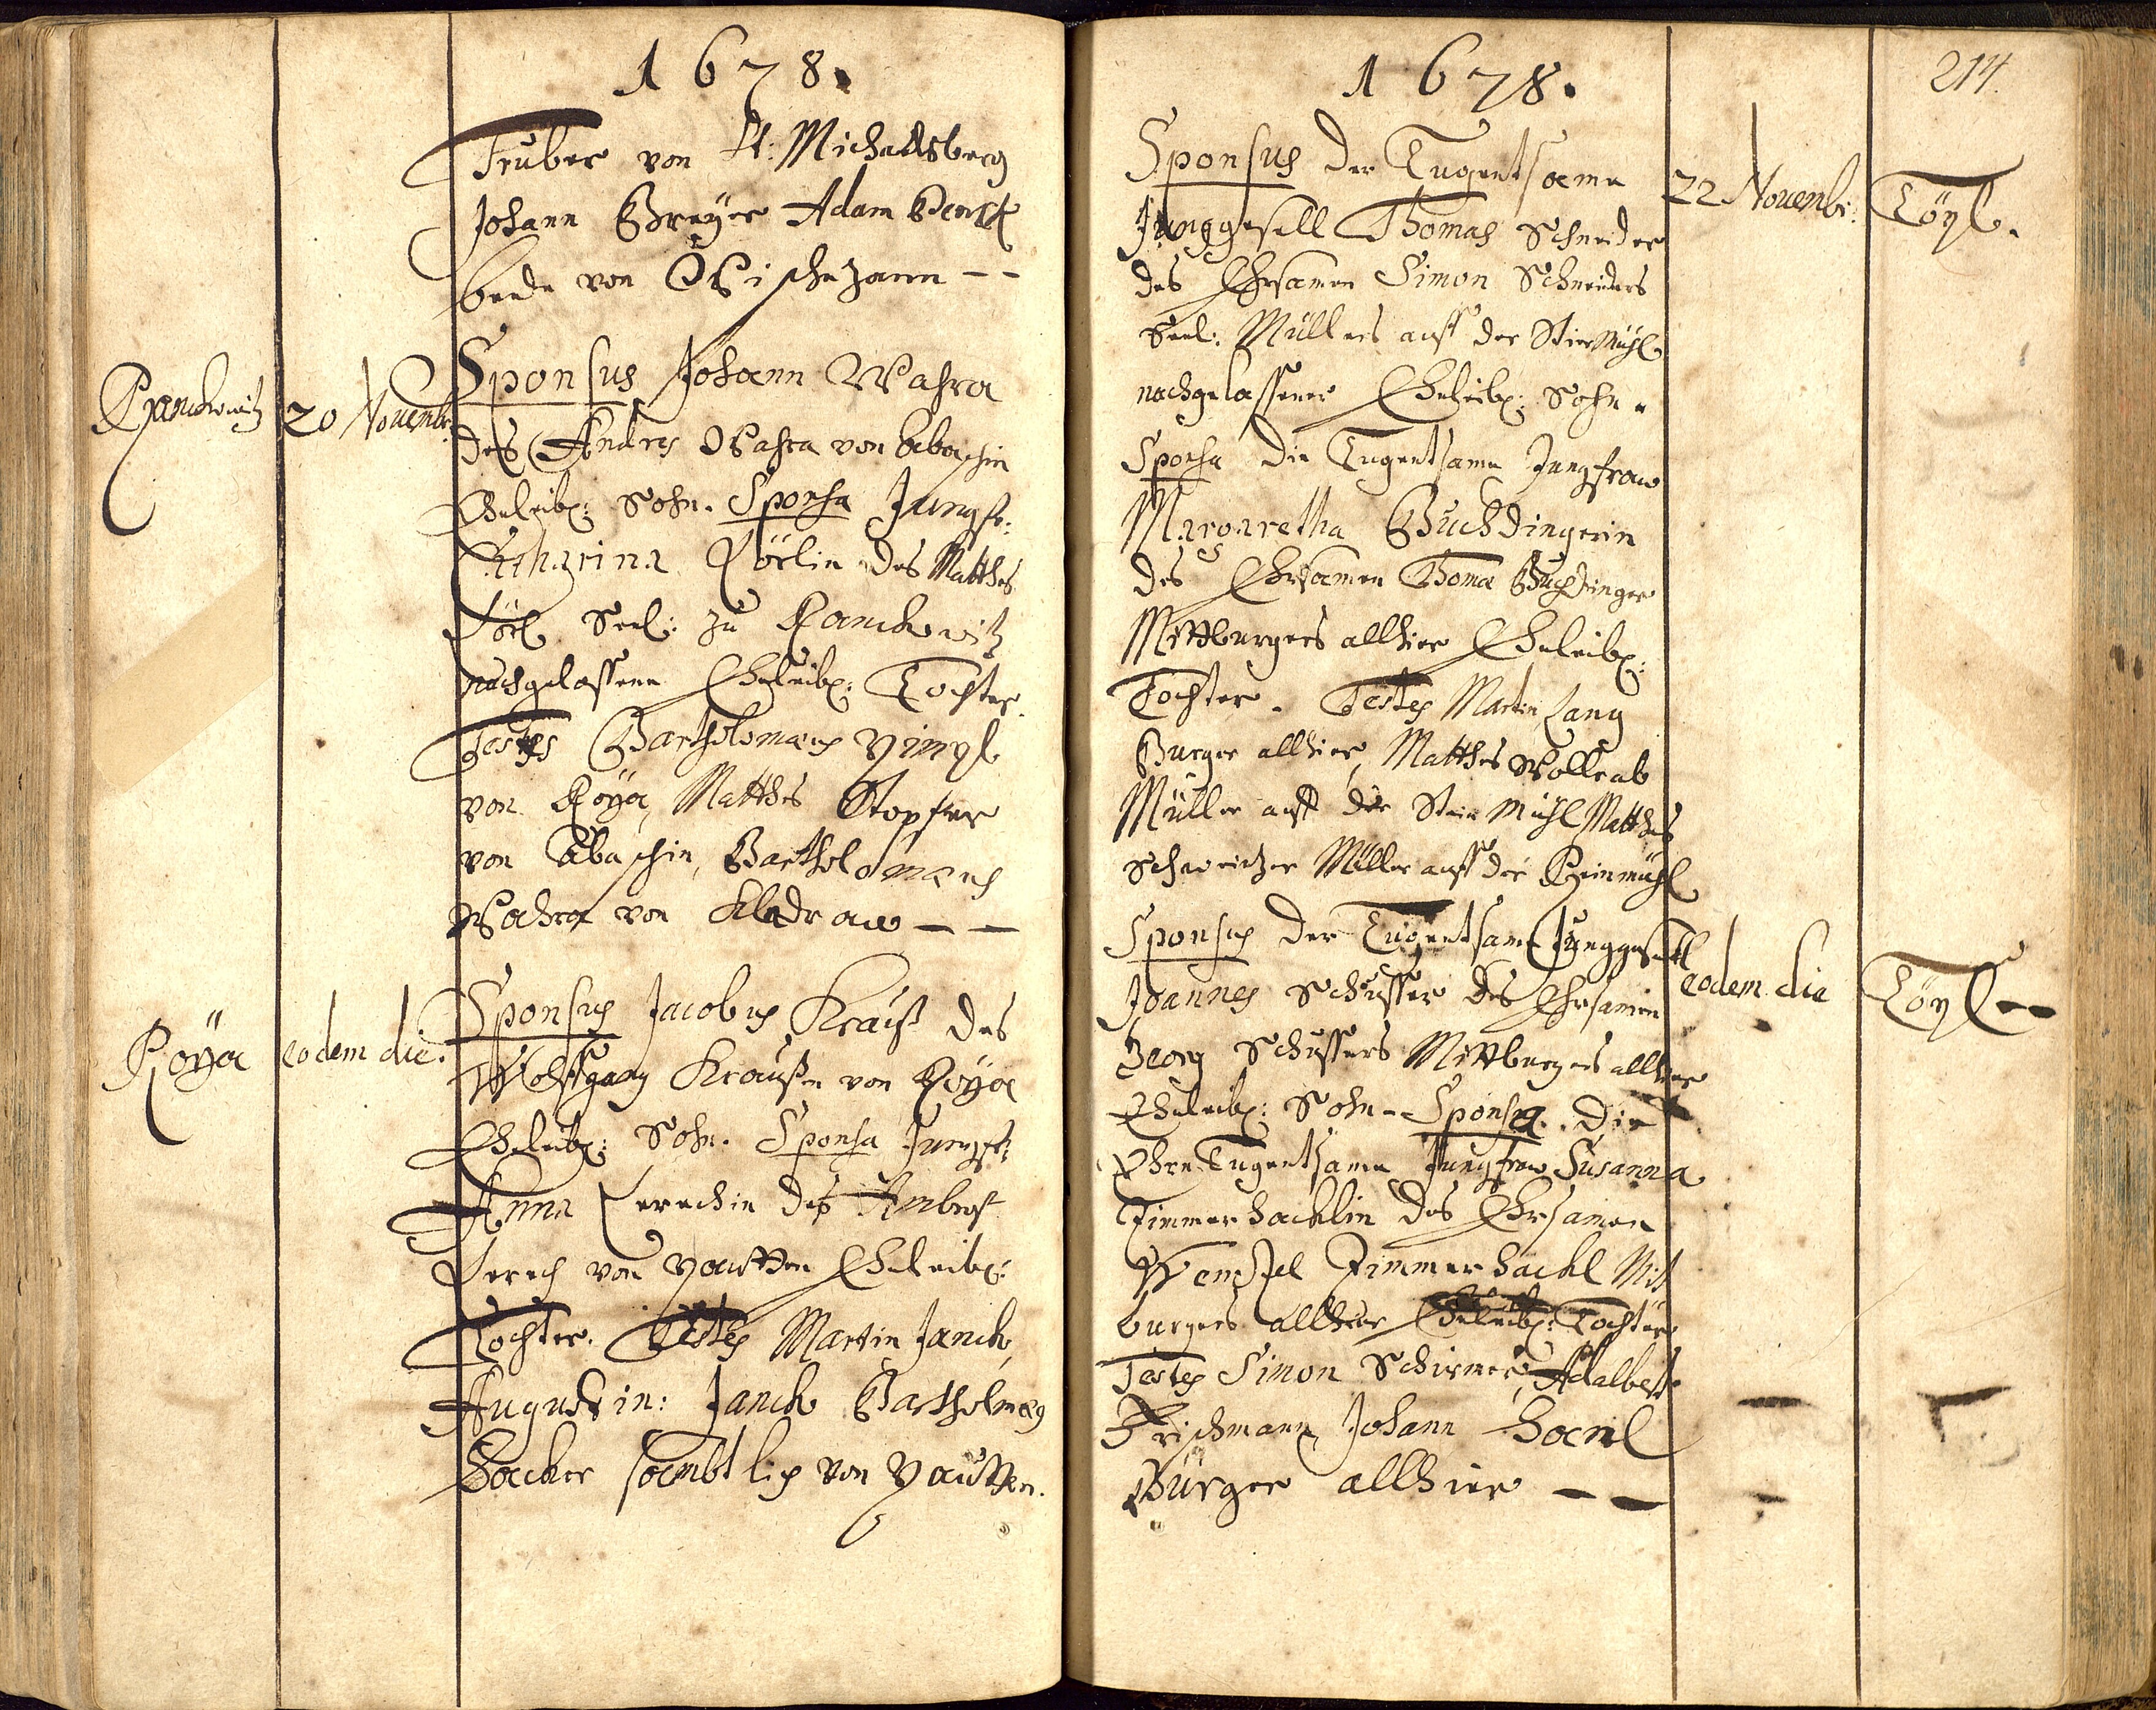 1678.
Truber von St: Michaelsberg
Johann Breÿer Adam
beede von
Ranckowitz
20 Novemb:
Sponsus Johann Wahra
des Andres Wahra von Abaschin
Eheleibl: Sohn. Sponsa Jungfr:
Catharina Löslin des Matthes
Lösl Seel: zu Ranckowitz
nachgelassene Eheleibl: Tochter.
Testes Bartholomaeus
von Roÿa, Matthes Stopfer
von Abaschin, Bartholomaeus
Wahra von Kladraw — —
Roÿa
eodem die.
Sponsus Jacobus Krauß des
Wolffgang Kraußen von Roÿa
Eheleibl: Sohn. Sponsa Jungfr:
Anna Lerachin des Ambros
Lerach von Eheleibl:
Tochter. Testes Martin Janck,
Augustin: Janck Bartholmaeus
Hacker sambtlich von
214.
1678.
22 Novembr:
Töpl.
Sponsus der Tugentsame
Junggesell Thomas Schneider
des Ehrsamen Simon Schneiders
Seel: Müllers auff der Mühl
nachgelassener Eheleibl: Sohn.
Sponsa die Tugentsame Jungfraw
Margaretha Buchdingerin
des Ehrsamen Thoma Buchdinger
Mittburgers allhier Eheleibl:
Tochter. Testes Martin Lang
Burger allhier, Matthes Wollrab
Müller auff der Mühl Matthes
Schweitzer Müller auff der
eodem die
Töpl —
Sponsus der Tugentsame Junggesell
Joannes Schusser des Ehrsamen
Georg Schussers Mittburgers allhier
Eheleibl: Sohn. Sponsa. Die
Ehrn Tugentsame Jungfraw Susanna
Zimmerhacklin des Ehrsamen
Wenzel Zimmerhackl Mit
burgers allhier Eheleibl: Tochter
Testes Simon Schirmer, Adalbert
Frischmann, Johann
Bürger allhier — —